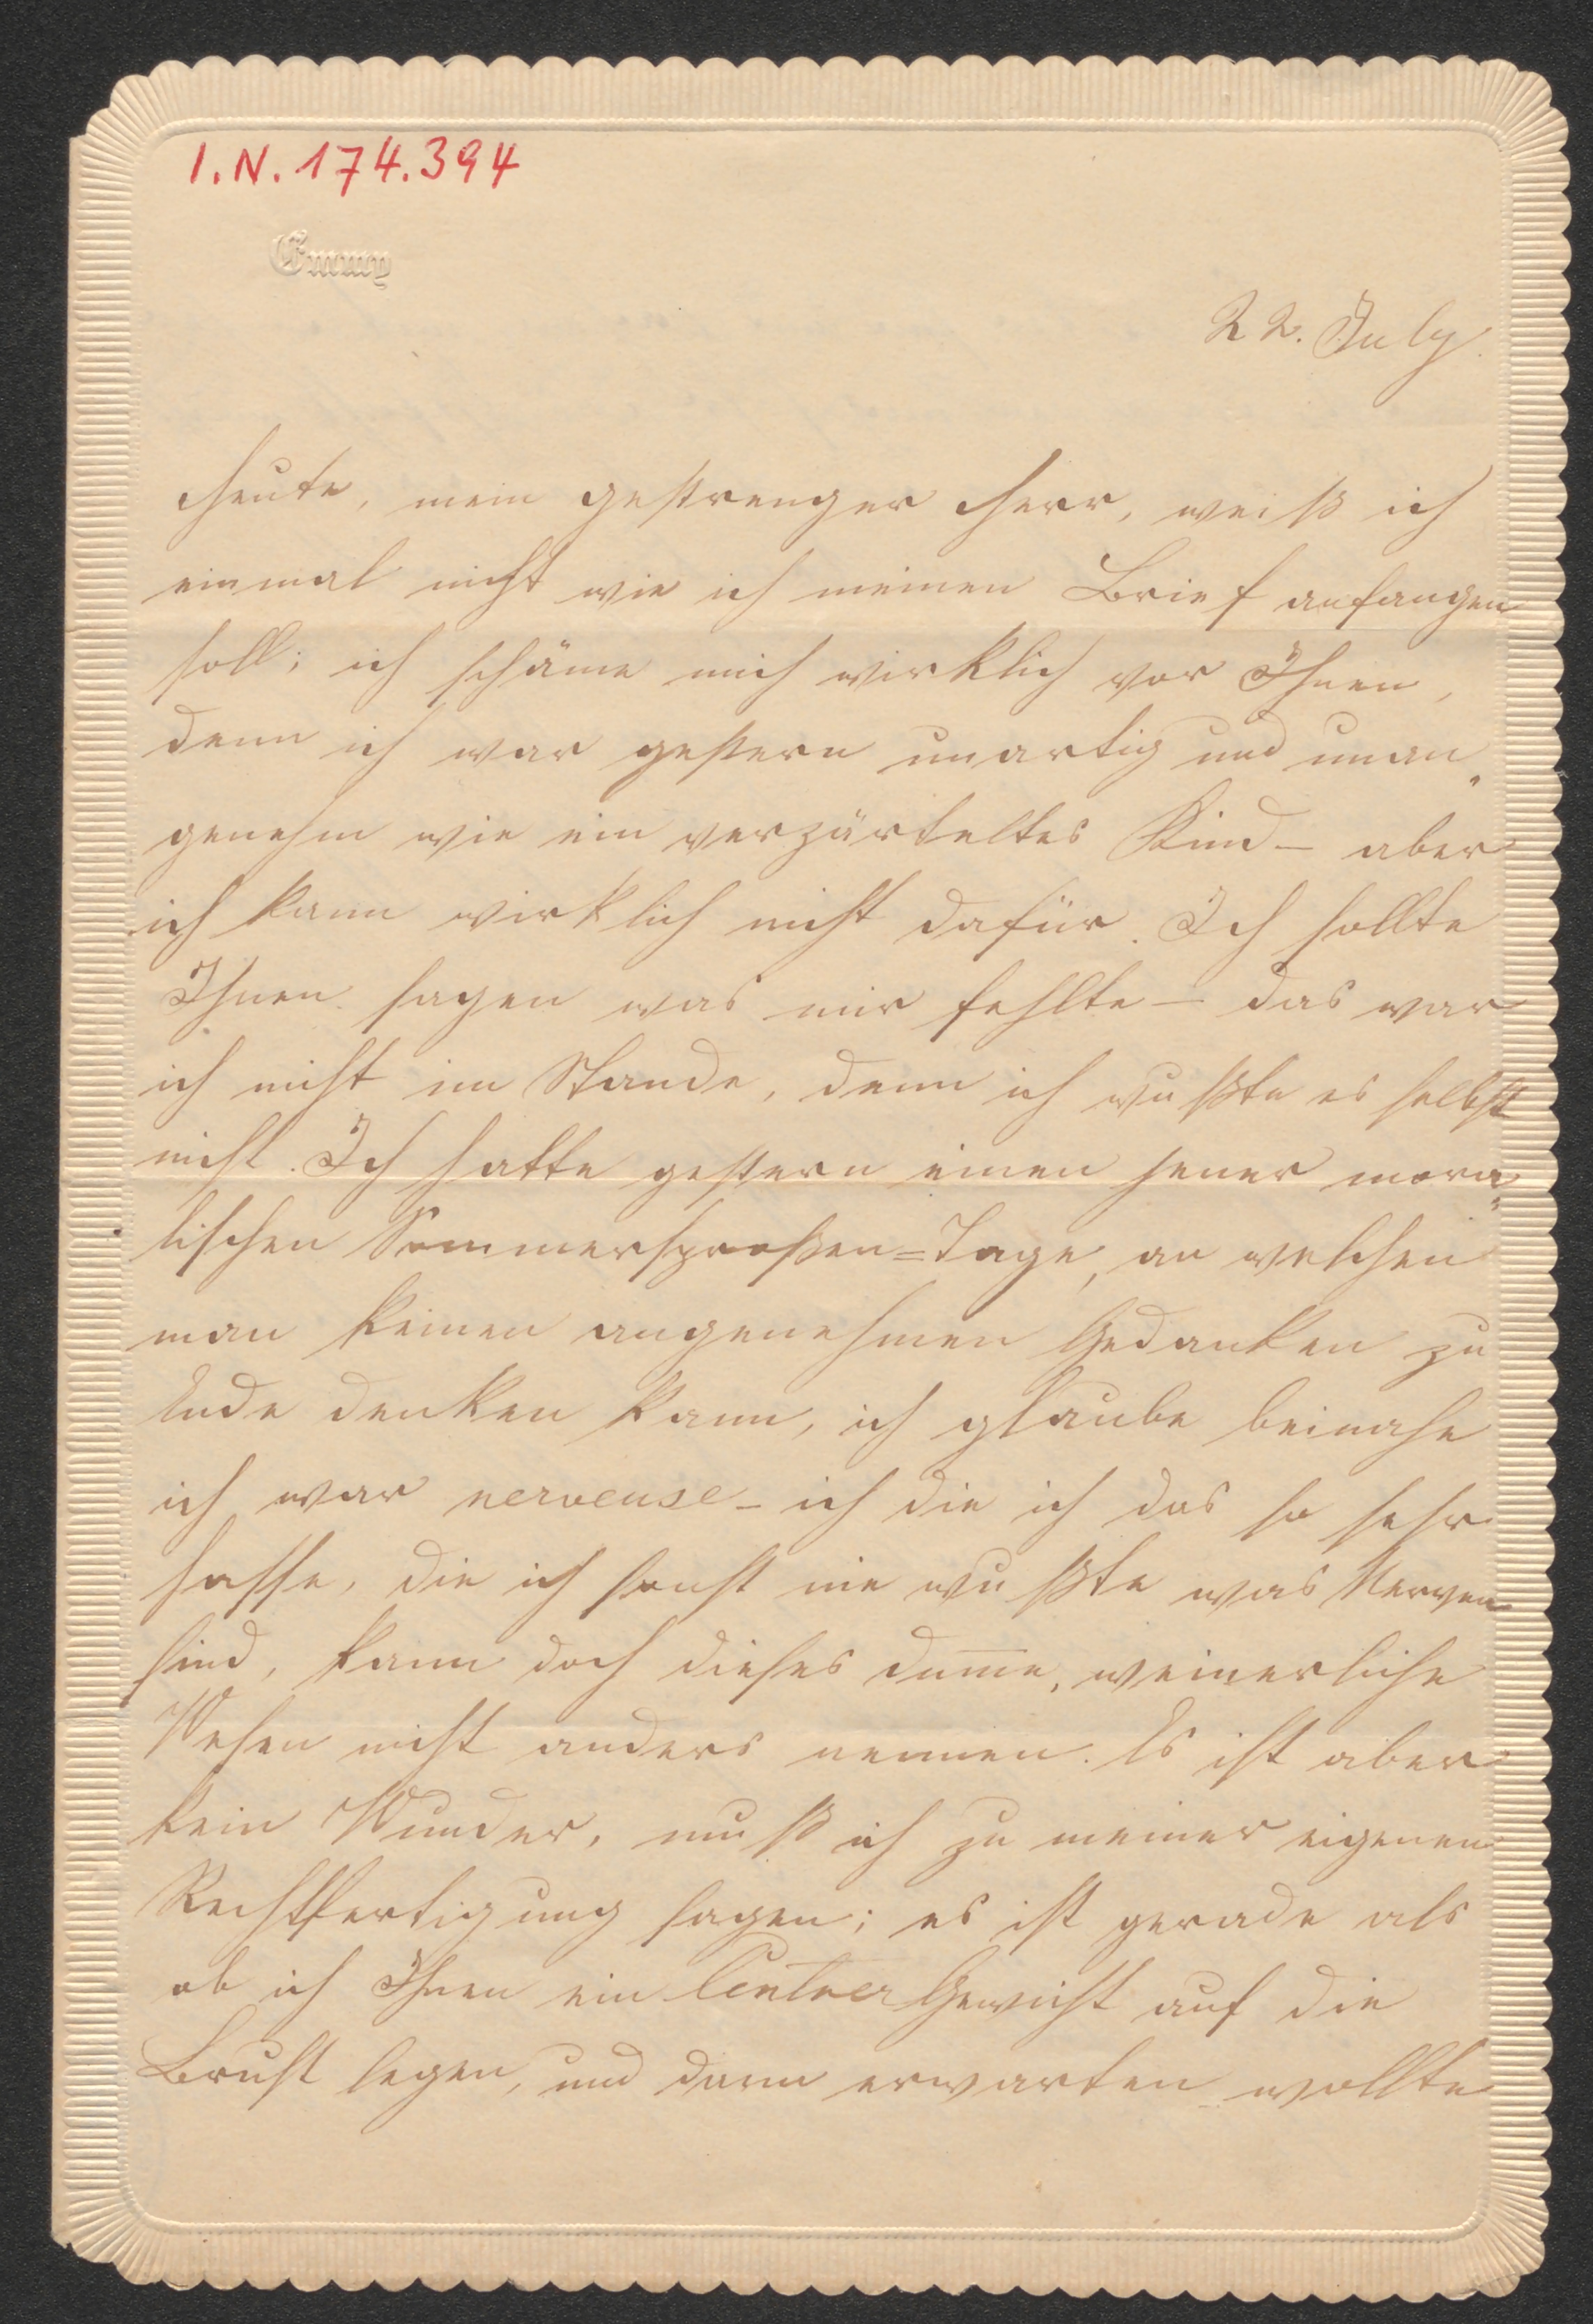 I.N. 174.394
Emmy
22. July.
Heute, mein gestrenger Herr, weiß ich
einmal nicht wie ich meinen Brief anfangen
soll; ich schäme mich wirklich vor Ihnen,
denn ich war gestern unartig und unan„
genehm wie ein verzärteltes Kind – aber
ich kann wirklich nicht dafür. Ich sollte
Ihnen sagen was mir fehlte – das war
ich nicht im Stande, denn ich wußte es selbst
nicht. Ich hatte gestern einen jener mora„
lischen Sommersproßen=Tage, an welchen
man keinen angenehmen Gedanken zu
Ende denken kann, ich glaube beinahe
ich war nerveuse – ich die ich das so sehr
hasse, die ich sonst nie wußte was Nerven
sind, kann doch dieses dum̅e, weinerliche
Wesen nicht anders nennen. Es ist aber
kein Wunder, muß ich zu meiner eigenen
Rechtfertigung sagen; es ist gerade als
ob ich Ihnen ein Centner Gewicht auf die
Brust legen, und dann erwarten wollte